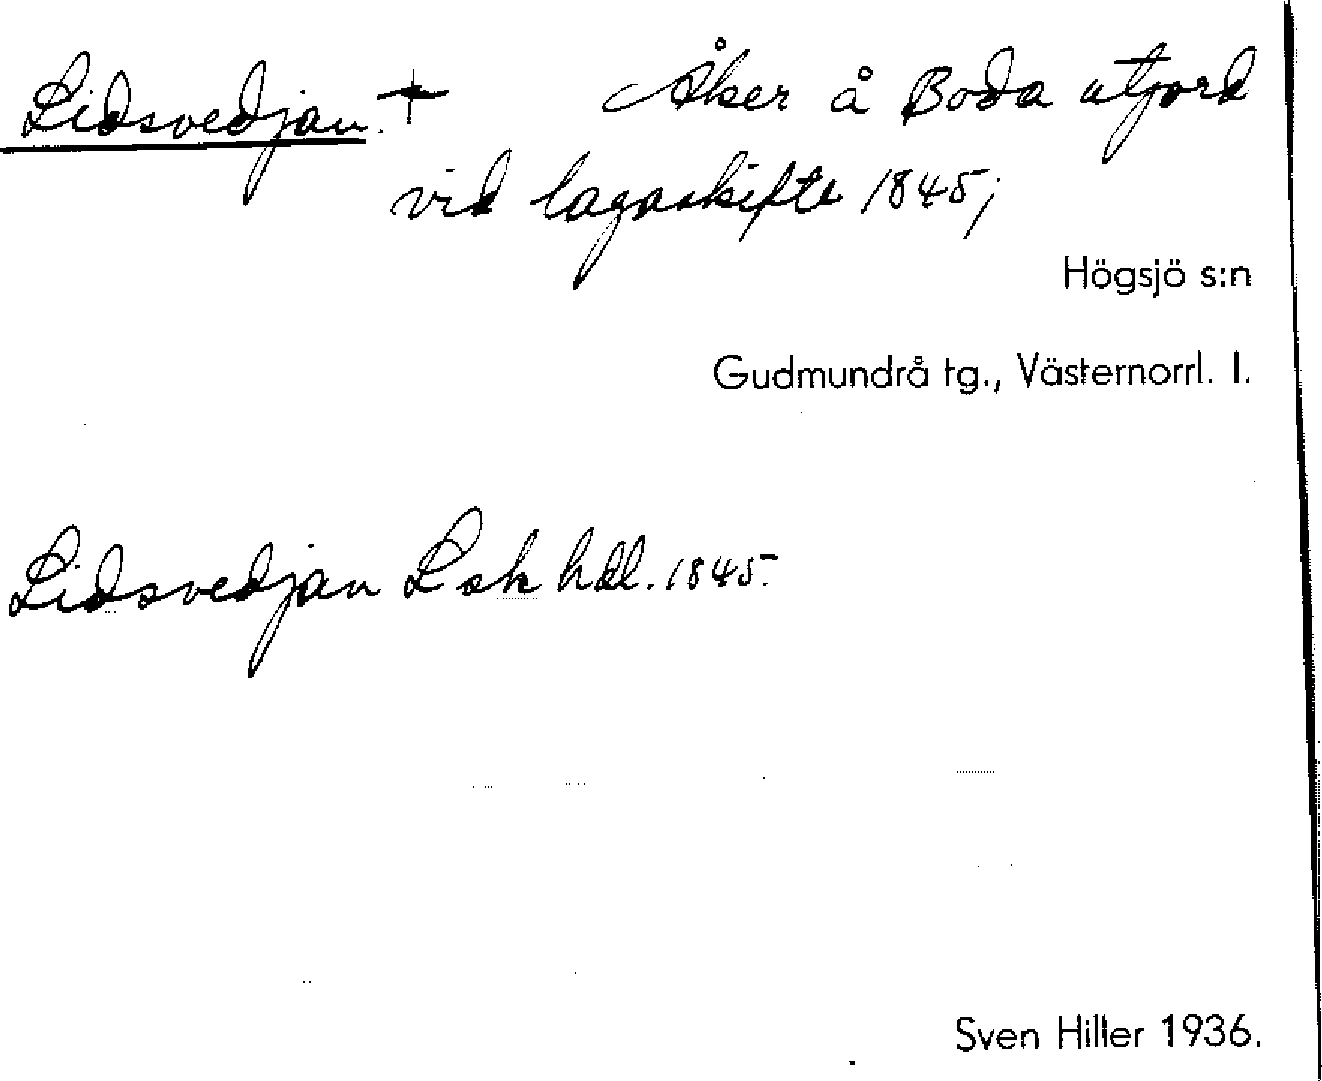 Lidsvedjan. + Åker å Boda utjord
vid lagaskifte 1845;
Högsjö s:n
Gudmundrå tg., Västernorrl. l.
Lidsvedjan Lsk hdl. 1845.
Sven Hiller 1936.